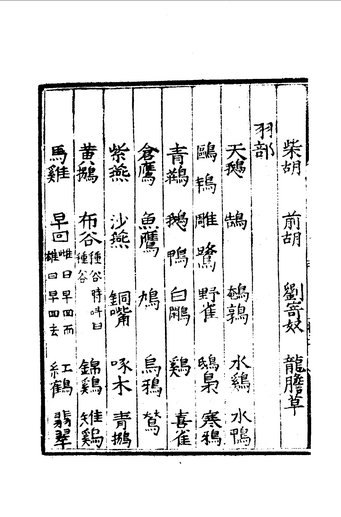 柴胡 前胡 劉寄奴 龍膽草
羽部
天鵝 鵠 鵪鶉 水鷄 水鴨
鷗 鴇 雕 鷺 野雀 鴟梟 寒鴉
青鶄 鵝 鴨 白鷴 鷄 喜雀
倉鷹 魚鷹 鳩 烏鴉 鶯
紫燕 沙燕 銅嘴 啄木 青鵰
黄鵰 布谷 種谷時呌曰種谷 錦鷄 雉鷄
馬鷄 早回 雌曰早回而雄曰早回去 紅鶴 翡翠